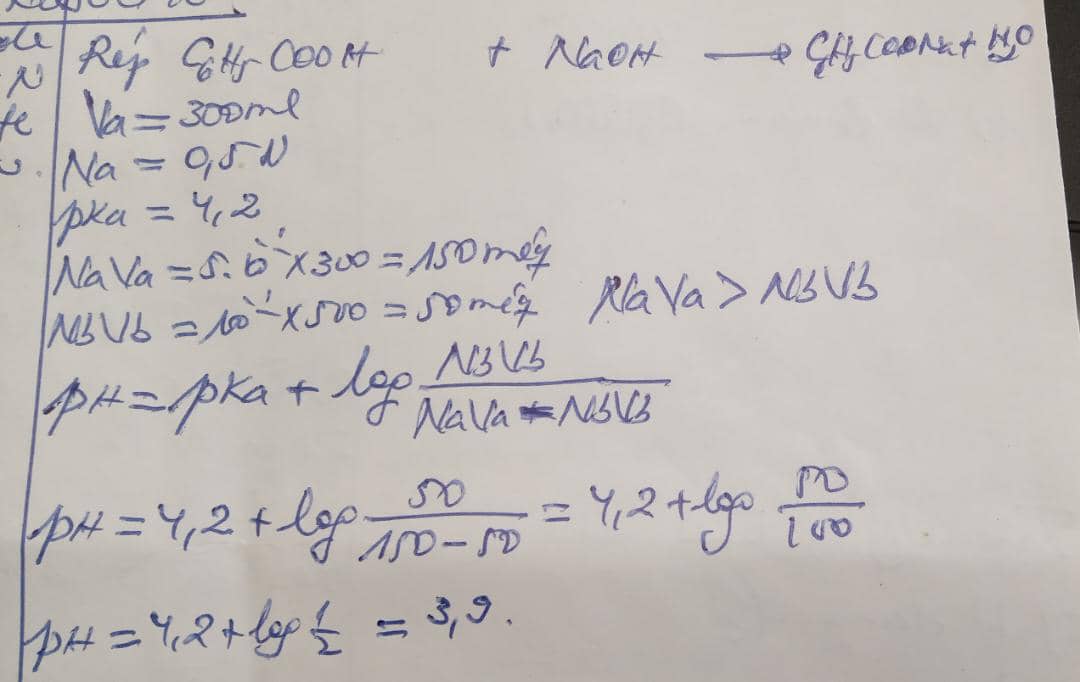 de
N
te
Rép C6H5-COOH + NaOH → C6H5COONa + H2O
Va = 300ml
Na = 0,5 N
pka = 4,2
NaVa = 5.10⁻¹ x 300 = 150 méq
NbVb = 10⁻¹ x 500 = 50 méq NaVa > NbVb
pH = pKa + log NbVb / NaVa - NbVb
pH = 4,2 + log 50 / 150 - 50 = 4,2 + log 50 / 100
pH = 4,2 + log 1/2 = 3,9.